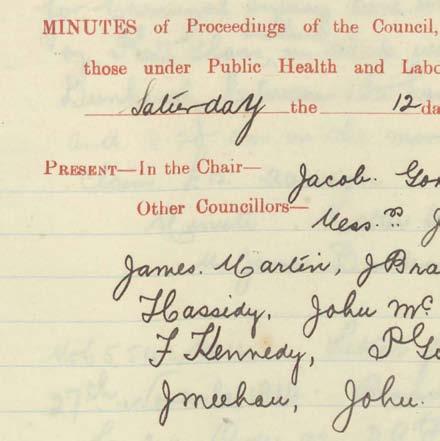 MINUTES of Proceedings of the Council,
those under Public Health and Labo
Saturday the 12 da
PRESENT—In the Chair—
Jacob. Gor
Other Councillors—
Mess.rs J
James. Martin, J Bra
Hassidy, John Mc
F Kennedy, P Go
J Meehan, John.